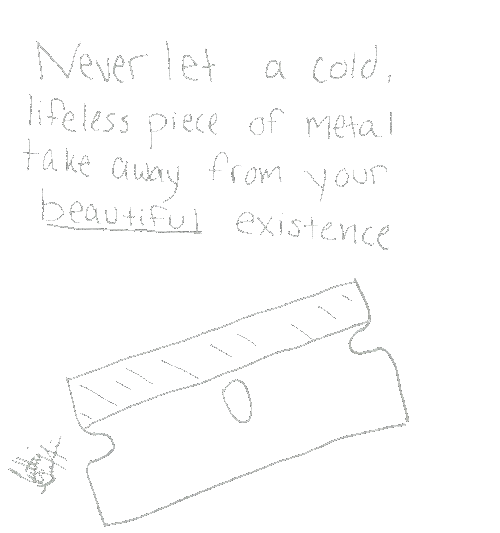 Never let a cold,
lifeless piece of metal
take away from your
beautiful existence